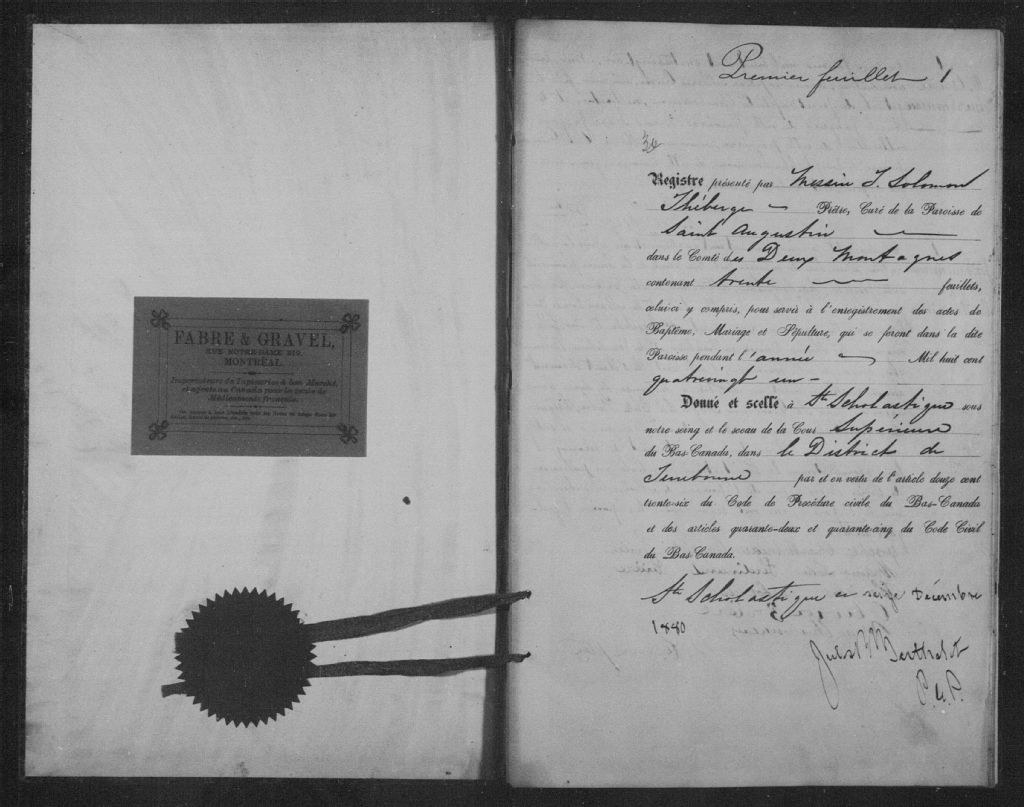 FABRE & GRAVEL,
RUE NOTRE-DAME 219,
MONTRÉAL
Importateurs de Tapisseries à bon Marché,
et agents au Canada pour la vente de
Médicaments français.
Premier feuillet 1
Registre présenté par Messire J. Solomon
Théberge — Prêtre, Curé de la Paroisse de
Saint Augustin —
dans le Comté des Deux Montagnes
contenant trente — feuillets,
celui-ci y compris, pour servir à l'enregistrement des actes de
Baptême, Mariage et Sépulture, qui se feront dans la dite
Paroisse pendant l'année — Mil huit cent
quatrevingt un —
Donné et scellé à Ste Scholastique sous
notre seing et le sceau de la Cour Supérieure
du Bas-Canada, dans le District de
Terrebonne par et en vertu de l'article douze cent
trente-six du Code de Procédure civile du Bas-Canada
et des articles quarante-deux et quarante-cinq du Code Civil
du Bas-Canada.
Ste Scholastique ce seize Décembre
1880
Berthelot
P.C.S.